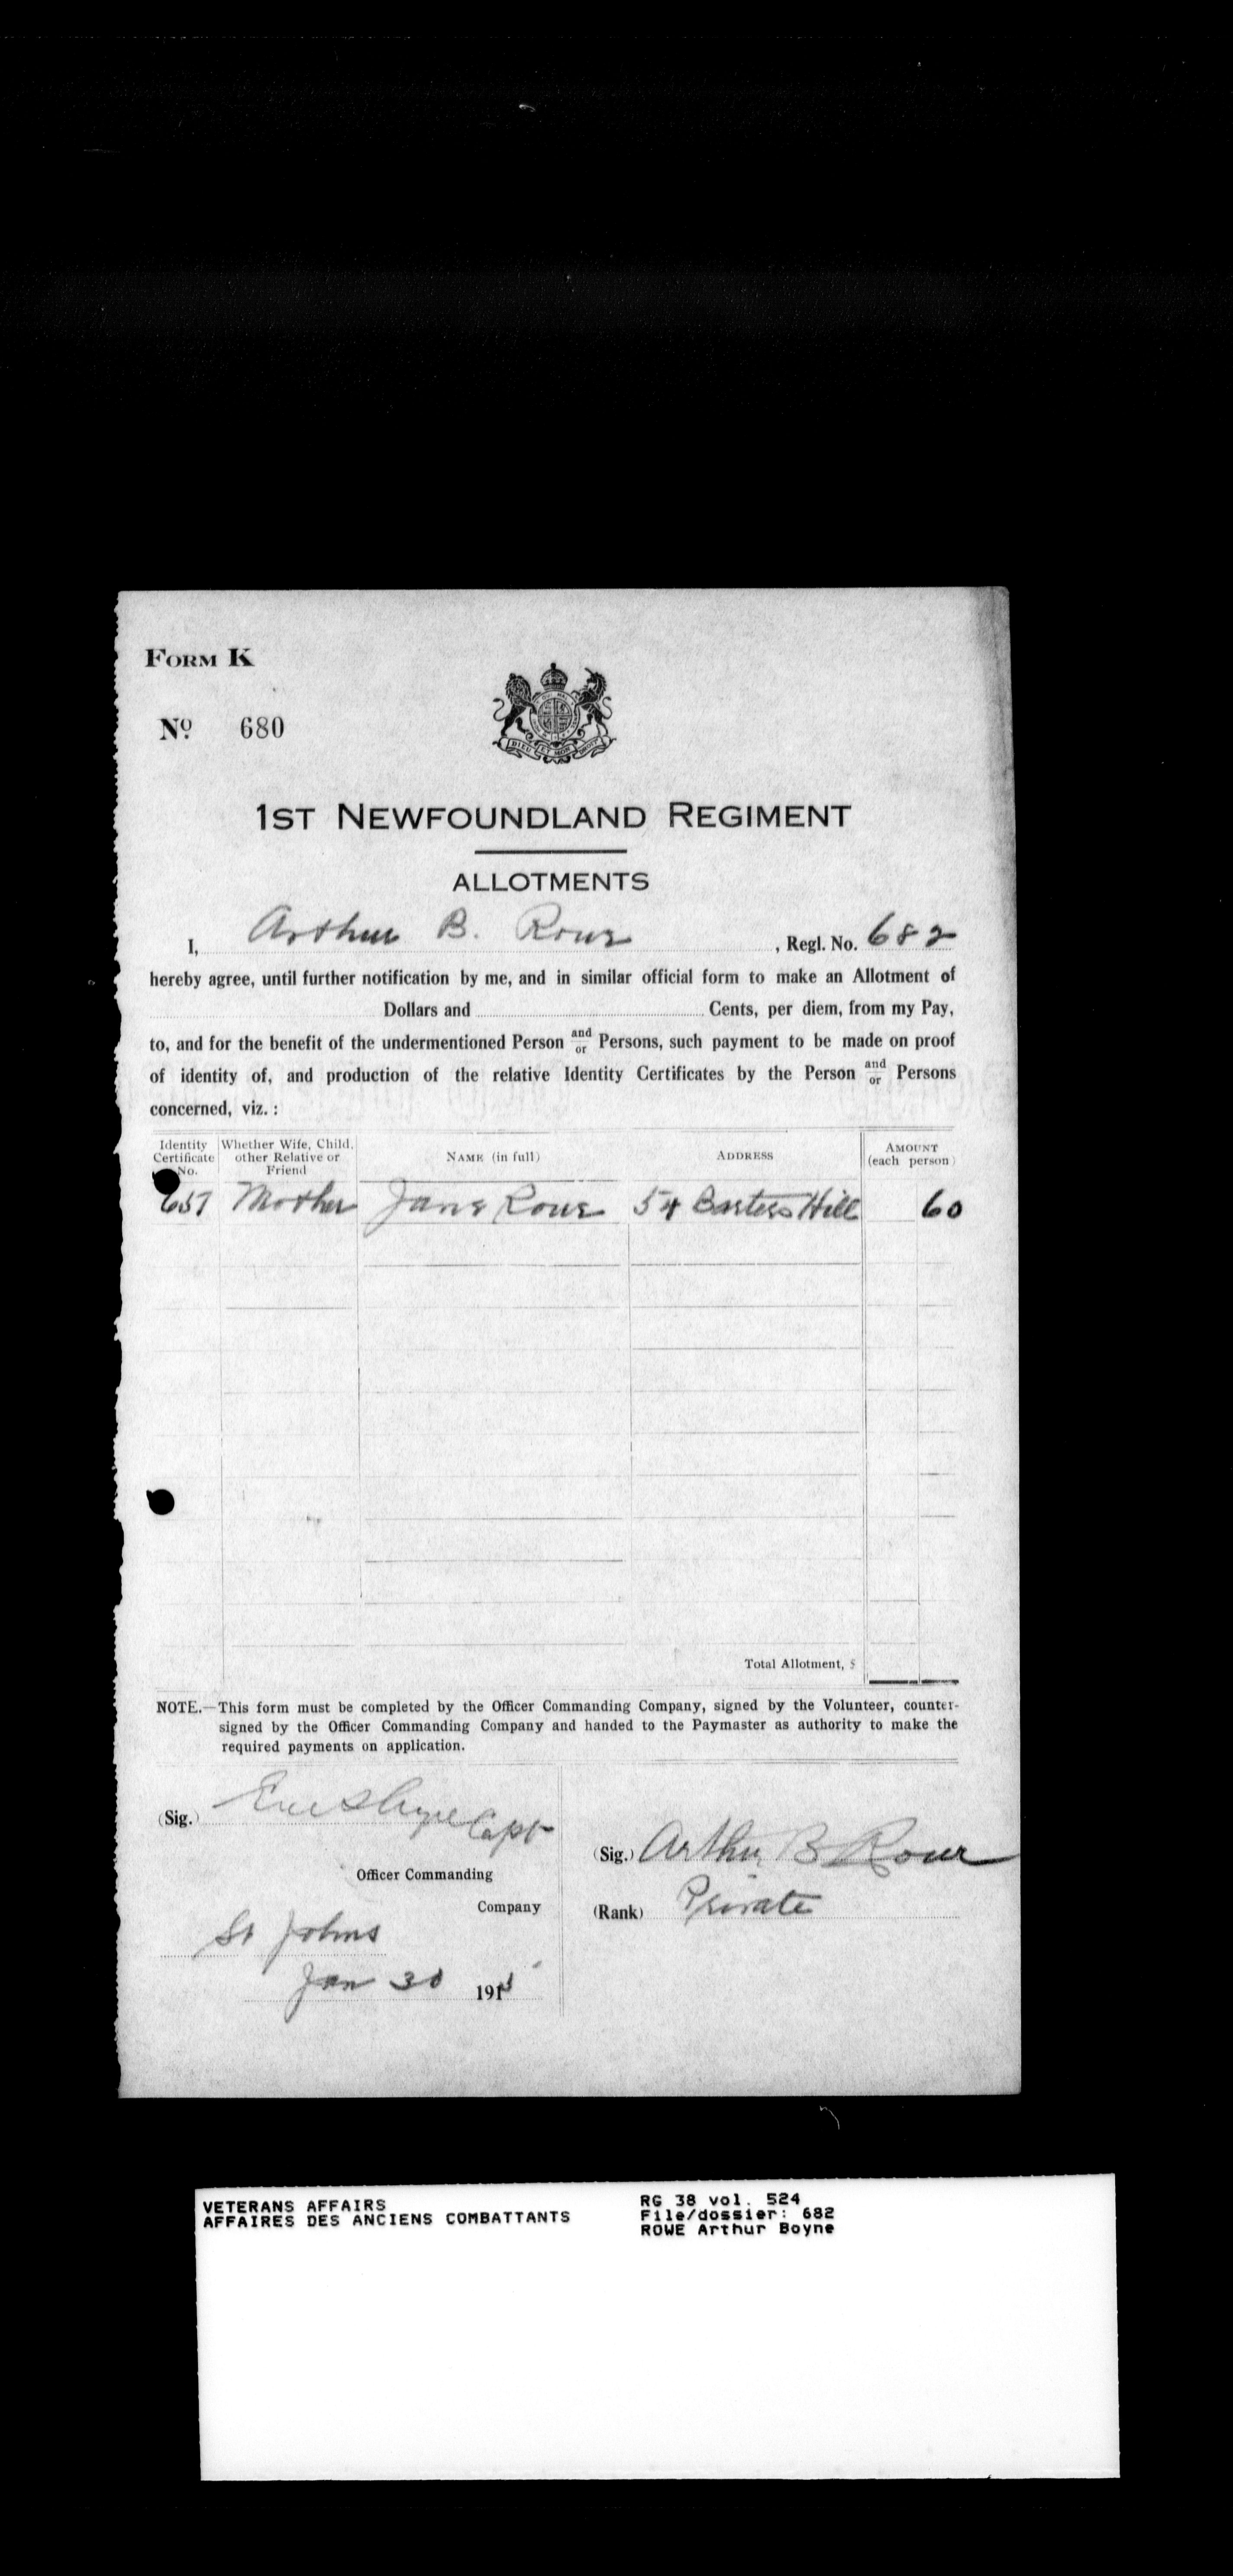 FORM K
No. 680
DIEU ET MON DROIT
1ST NEWFOUNDLAND REGIMENT
ALLOTMENTS
I, Arthur B. Rowe, Regl. No. 682
hereby agree, until further notification by me, and in similar official form to make an Allotment of
Dollars and Cents, per diem, from my Pay,
to, and for the benefit of the undermentioned Person and/or Persons, such payment to be made on proof
of identity of, and production of the relative Identity Certificates by the Person and/or Persons
concerned, viz. :
Identity Certificate No. Whether Wife, Child, other Relative or Friend NAME (in full) ADDRESS AMOUNT (each person)
657 Mother Jane Rowe 54 Barters Hill 60
Total Allotment, $
NOTE.—This form must be completed by the Officer Commanding Company, signed by the Volunteer, counter-
signed by the Officer Commanding Company and handed to the Paymaster as authority to make the
required payments on application.
(Sig.) Capt
Officer Commanding
Company
St Johns
Jan 30 191
(Sig.) Arthur B Rowe
(Rank) Private
VETERANS AFFAIRS
AFFAIRES DES ANCIENS COMBATTANTS
RG 38 vol. 524
File/dossier: 682
ROWE Arthur Boyne